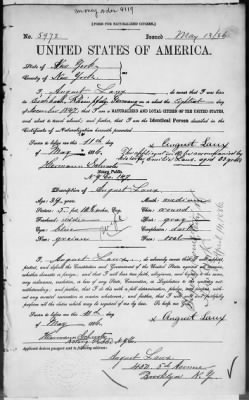 money order 4119
[FORM FOR NATURALIZED CITIZEN.]
No. 5972 Issued May 12/86
UNITED STATES OF AMERICA.
State of New York
County of New York
I, August Laux, do swear that I was born
in Germany on or about the
day of November 1847; that I am a NATURALIZED AND LOYAL CITIZEN OF THE UNITED STATES,
and about to travel abroad; and further, that I am the Identical Person described in the
Certificate of Naturalization herewith presented
Sworn to before me, this 11th day
of May 1886
August Laux
Notary Public
N.Y. Co.
Description of August Laux
Age: 38 years
Mouth: medium
Stature: 5
Chin: round
Forehead:
Hair: gray
Eyes: blue
Complexion: dark
Nose: grecian
Face: oval
I, August Laux, do solemnly swear that I will support,
protect, and defend the Constitution and Government of the United States against all enemies,
whether domestic or foreign; and that I will bear true faith, allegiance, and loyalty to the same,
any ordinance, resolution, or law of any State, Convention, or Legislature to the contrary notwithstanding;
and further, that I do this with a full determination, pledge, and purpose, without
any mental reservation or evasion whatsoever; and further, that I will well and faithfully
perform all the duties which may be required of me by law. So help me God.
Sworn to before me, this 11th day
of May 1886
August Laux
Notary Public N.Y. Co.
Applicant desires passport sent to following address:
August Laux
5th Avenue
Brooklyn N.Y.